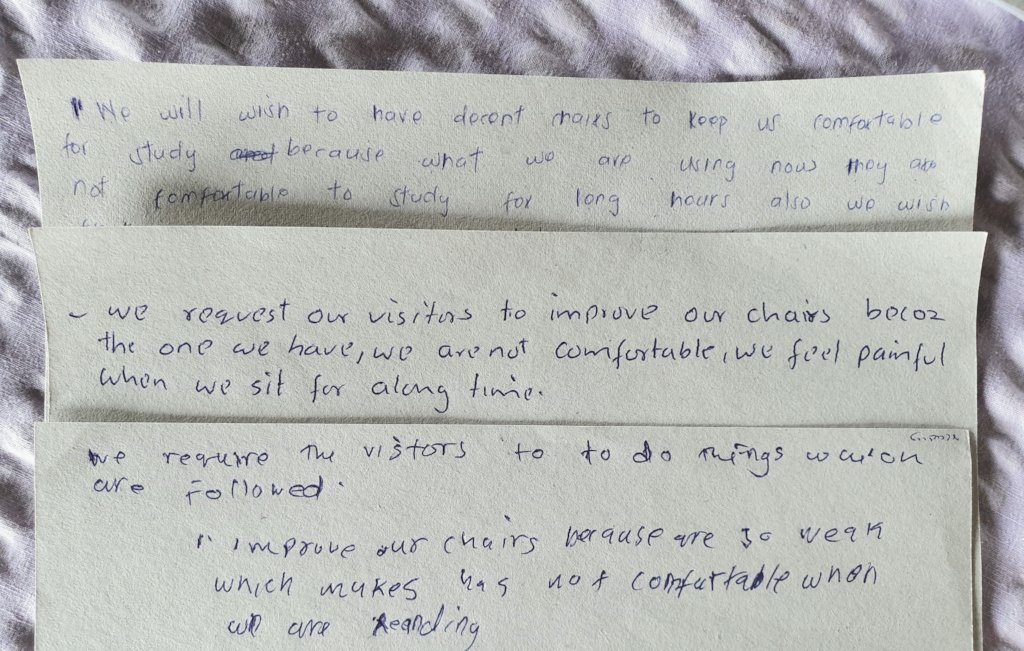 " We will wish to have decent chairs to keep us comfortable
for study because what we are using now they are
not comfortable to study for long hours also we wish
- we request our visitors to improve our chairs becoz
the one we have, we are not comfortable, we feel painful
when we sit for along time.
we require the visitors to to do things which
are followed.
" improve our chairs because are so weak
which makes has not comfortable when
we are reanding